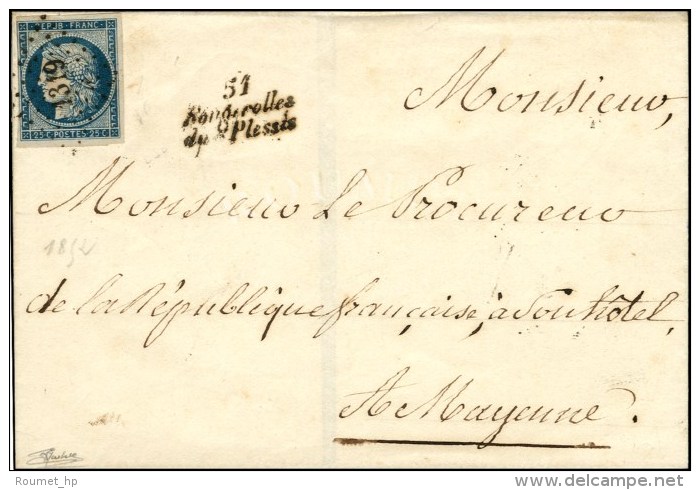 REPUB FRANC
1319
25·C·POSTES·25·C
51
Fougerolles
du Plessis
Monsieur,
Monsieur Le Procureur
1852
de la République française, à Son hôtel,
A Mayenne.
Roumet_hp
www.delcampe.net